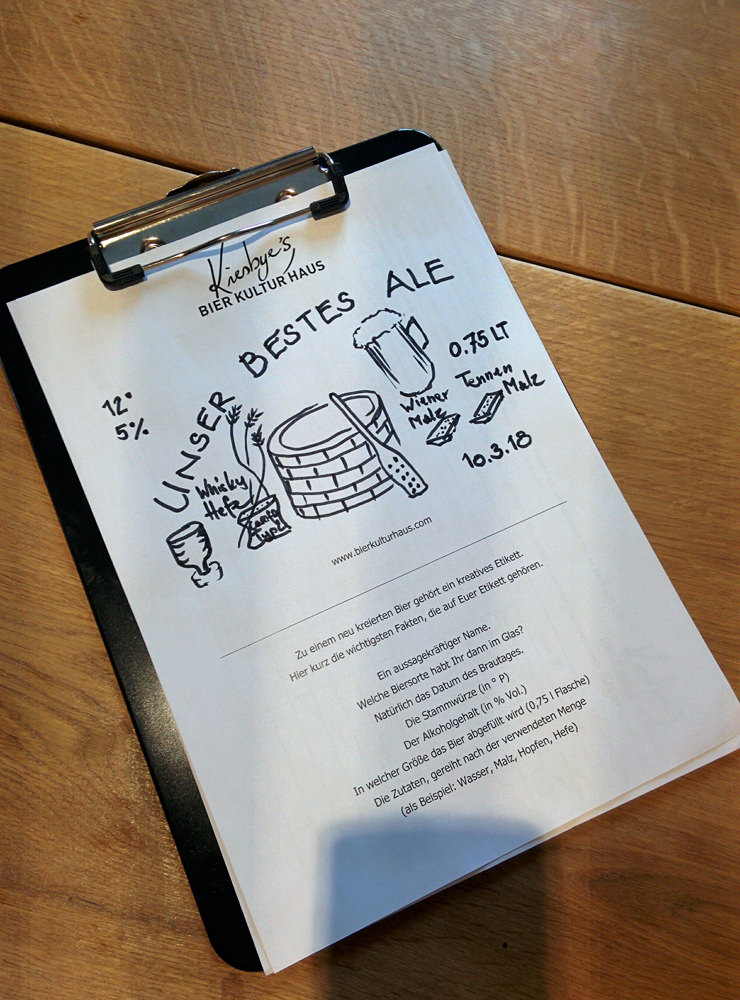 Kiesbye's
BIER KULTUR HAUS
UNSER BESTES ALE
12°
5%
0.75 LT
Wiener
Malz
Tennen
Malz
10.3.18
Whisky
Hefe
www.bierkulturhaus.com
Zu einem neu kreierten Bier gehört ein kreatives Etikett.
Hier kurz die wichtigsten Fakten, die auf Euer Etikett gehören.
Ein aussagekräftiger Name.
Welche Biersorte habt Ihr dann im Glas?
Natürlich das Datum des Brautages.
Die Stammwürze (in ° P)
Der Alkoholgehalt (in % Vol.)
In welcher Größe das Bier abgefüllt wird (0,75 l Flasche)
Die Zutaten, gereiht nach der verwendeten Menge
(als Beispiel: Wasser, Malz, Hopfen, Hefe)